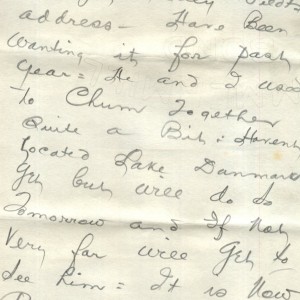 address - Have Been
Wanting it for past
Year = He and I used
To Chum Together
Quite a Bit : Haven't
Located Lake Danmark
Yet but will do so
Tomorrow and If Not
Very far will Get to
See Him = It is Now